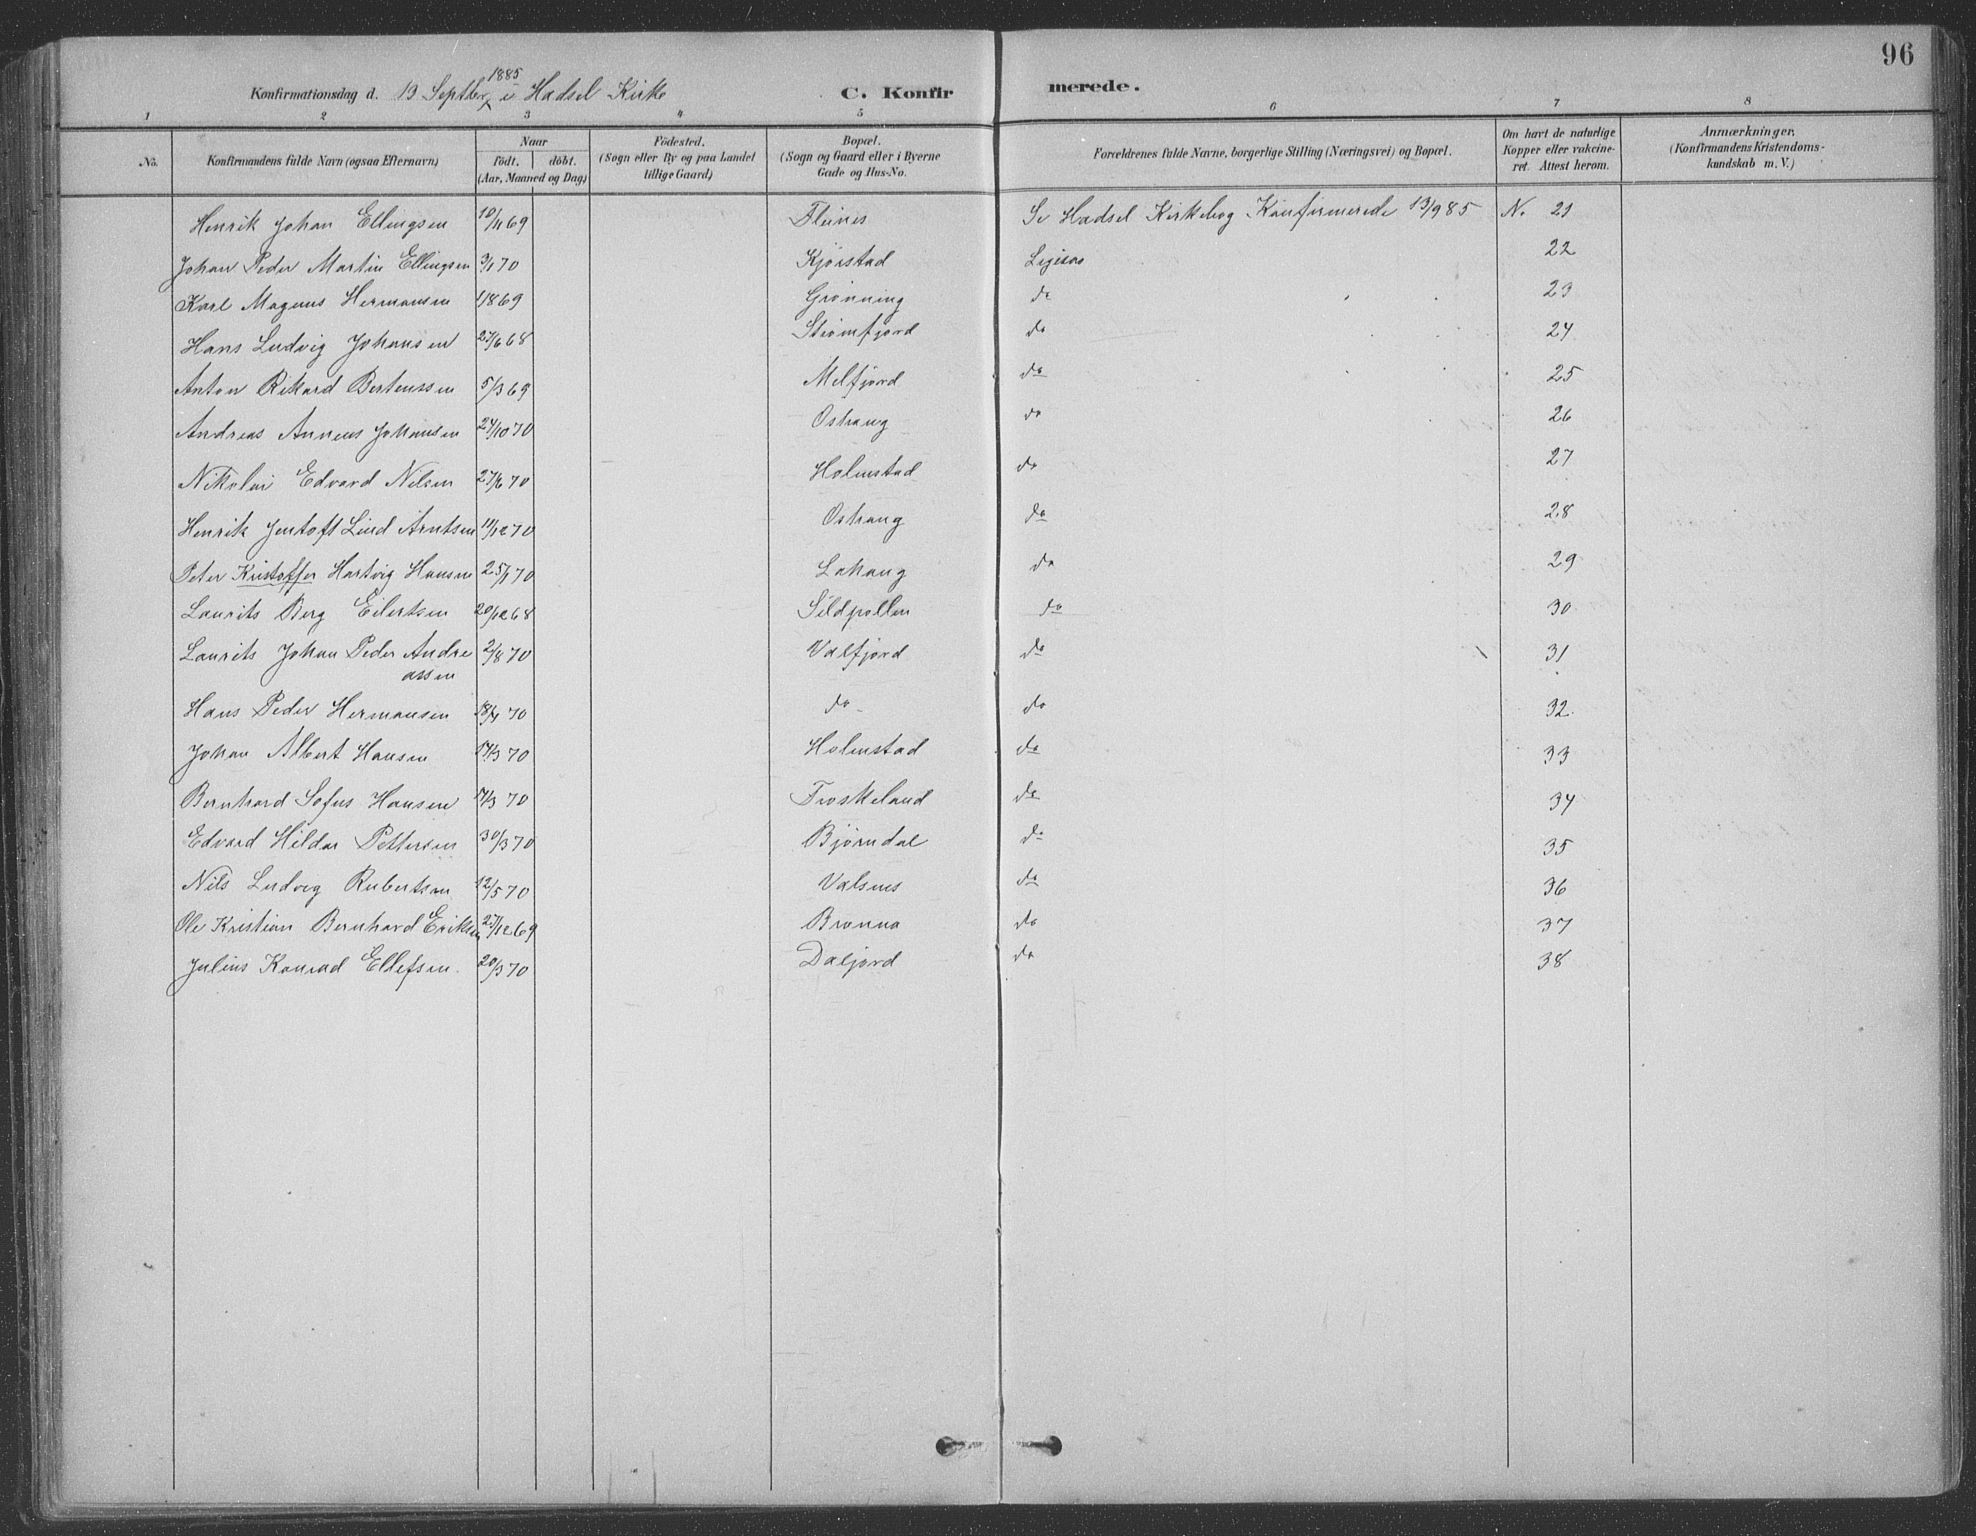 96
Konfirmationsdag d. 13 Septber 1885 i Hadsel Kirke C. Konfirmerede.
1 2 3 4 5 6 7 8
No. Konfirmandens fulde Navn (ogsaa Efternavn) Naar født. døbt. (Aar, Maaned og Dag) Födested. (Sogn eller By og paa Landet tillige Gaard) Bopæl. (Sogn og Gaard eller i Byerne Gade og Hus-No. Forældrenes fulde Navne, borgerlige Stilling (Næringsvei) og Bopæl. Om havt de naturlige Kopper eller vakcineret. Attest herom. Anmærkninger. (Konfirmandens Kristendomskundskab m. V.)
Henrik Johan Ellingsen 10/11 69 Fleines Se Hadsel Kirkebog Konfirmerede 13/9 85 N. 21
Johan Peder Martin Ellingsen 3/1 70 Kjørstad Ligesaa 22
Karl Magnus Hermansen 1869 Grønning do 23
Hans Ludvig Johansen 27/6 68 Strømfjord do 24
Anton Rikard Bertenssen 5/3 69 Melfjord do 25
Andreas Anneus Johansen 24/10 70 Oshaug do 26
Nikolai Edvard Nilsen 27/6 70 Holmstad do 27
Henrik Jentoft Lind Arntsen 11/12 70 Oshaug do 28
Peter Kristoffer Hartvig Hansen 25/1 70 Lahaug do 29
Laurits Berg Eilertsen 20/12 68 Sildpollen do 30
Laurits Johan Peder Andreassen 2/8 70 Valfjord do 31
Hans Peder Hermansen 18/4 70 do do 32
Johan Albert Hansen 17/3 70 Holmstad do 33
Bernhard Sofus Hansen 14/3 70 Froskeland do 34
Edvard Hildar Pettersen 30/3 70 Bjørndal do 35
Nils Ludvig Rubertsen 12/5 70 Valsnes do 36
Ole Kristian Bernhard Eriksen 27/12 69 Brønna do 37
Julius Konrad Ellefsen 20/3 70 Daljord do 38